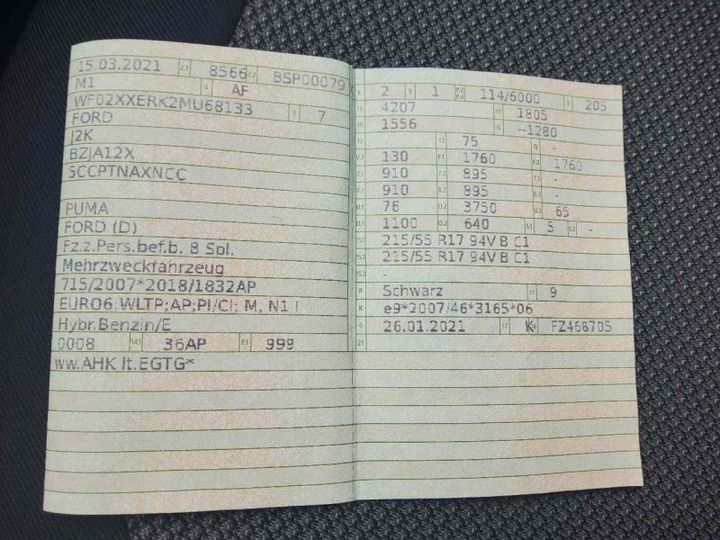 15.03.2021 8566 BSP00079
M1 AF
WF02XXERK2MU68133 7
FORD
J2K
BZJA12X
5CCPTNAXNCC
PUMA
FORD (D)
Fz.z.Pers.bef.b. 8 Spl.
Mehrzweckfahrzeug
715/2007*2018/1832AP
EURO6;WLTP;AP;PI/CI; M, N1 I
Hybr.Benzin/E
0008 36AP 999
ww.AHK lt.EGTG*
2 1 114/6000 205
4207 1805
1556 --1280
75 -
130 1760 1760
910 895 -
910 895 -
76 3750 65
1100 640 5 -
215/55 R17 94V B C1
215/55 R17 94V B C1
-
Schwarz 9
e9*2007/46*3165*06
26.01.2021 K FZ468705